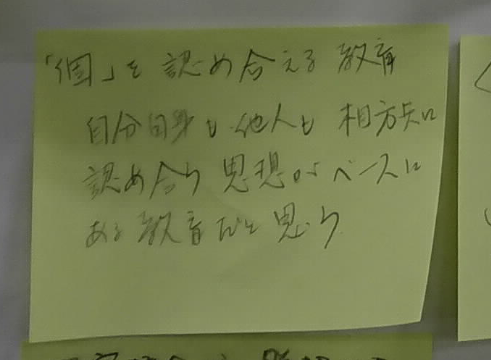 「個」を認め合える教育
自分自身も他人も相方共に
認め合う思想がベースに
ある教育だと思う